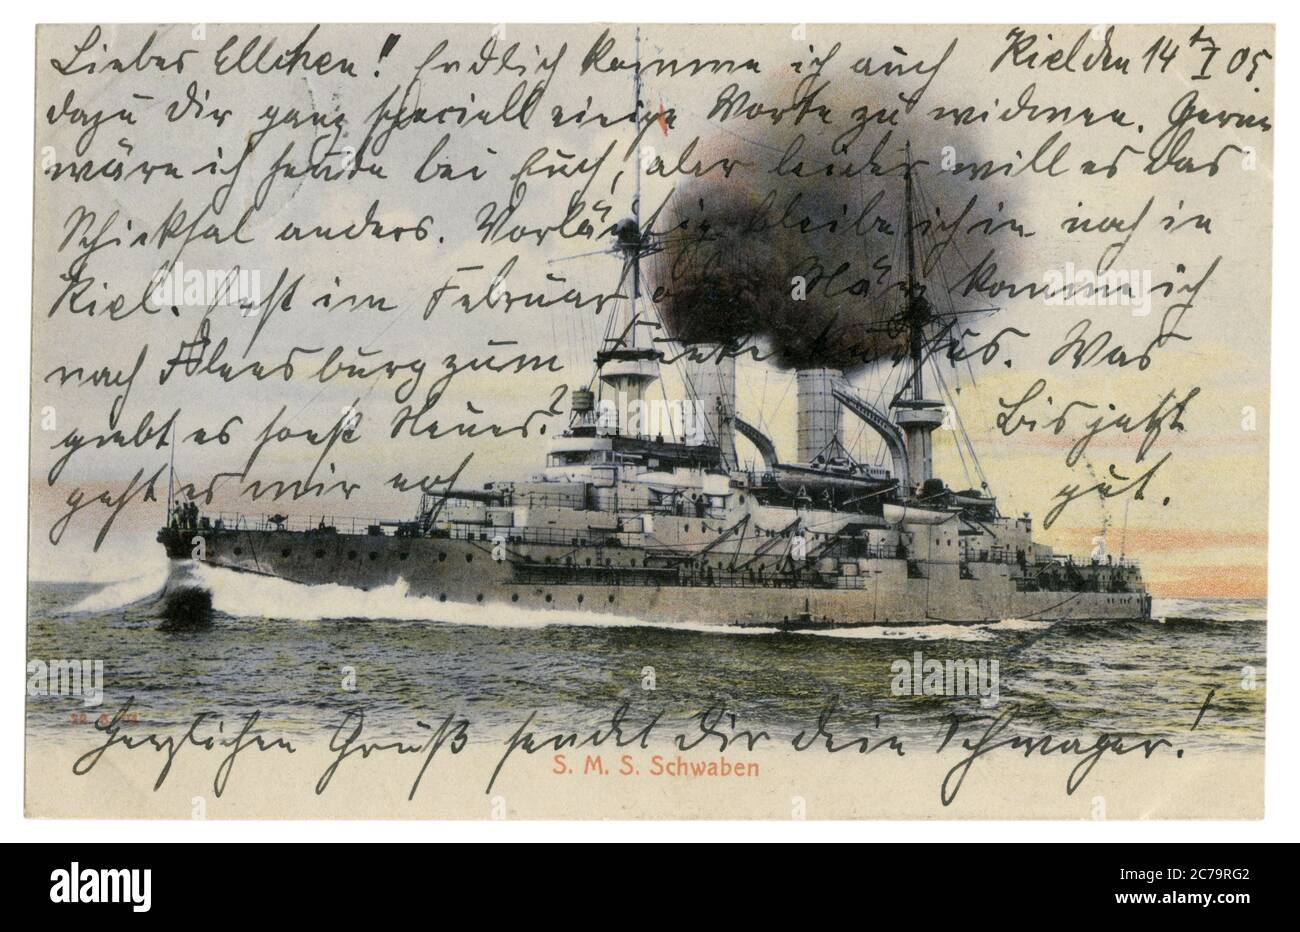 Liebes Ellchen! Endlich komme ich auch Kiel den 14/I 05
dazu Dir ganz speciell einige Worte zu widmen. Gerne
wäre ich heute bei Euch, aber leider will es das
Schicksal anders. Vorläufig bleibe ich noch in
Kiel. Erst im Februar oder März komme ich
nach Flensburg zum Funkerkursus. Was
giebt es sonst Neues? Bis jetzt
geht es mir noch gut.
Herzlichen Gruß sendet Dir dein Schwager!
S. M. S. Schwaben
alamy
Image ID: 2C79RG2
www.alamy.com